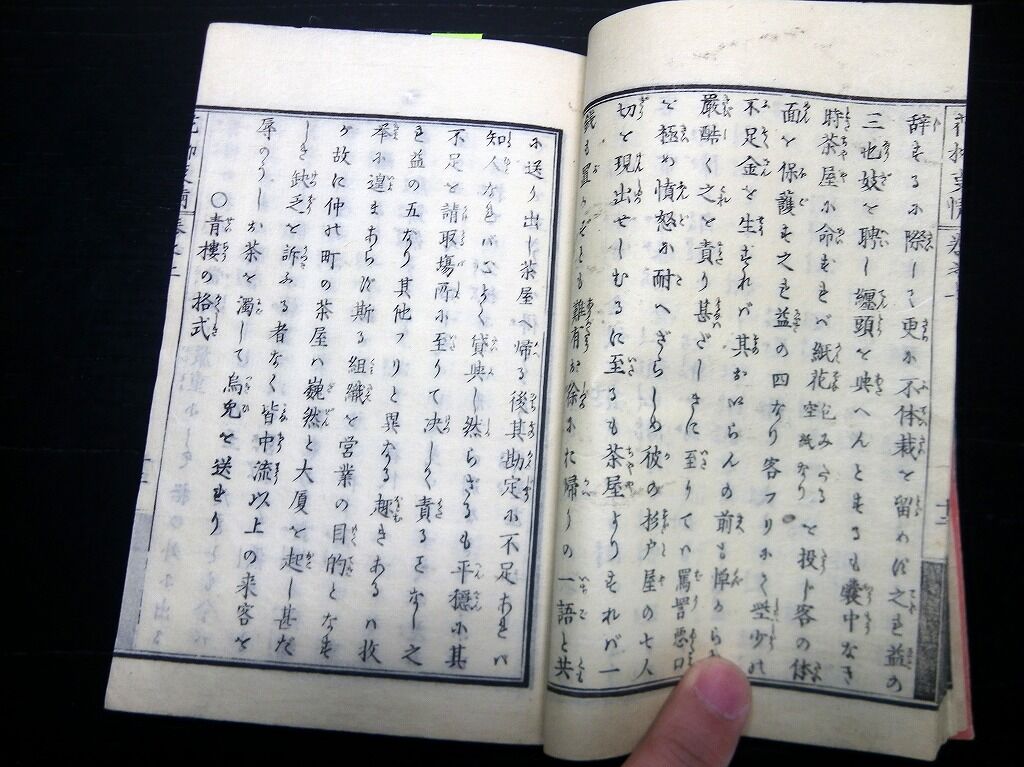 辞するに際して更に不体裁を留めず之を益の
三也妓を聘し纏頭を典へんとするも嚢中なき
時茶屋に命ずれバ紙花包みたる空紙なりを投ド客の体
面を保護す之を益の四なり客フリにて些少の
不足金を生ずれバ其かゝらんの前も憚から
厳酷く之を責り甚ざしきに至りてハ罵詈悪口
を極め憤怒に耐へざらしめ彼の杉戸屋の七人
切を現出せしむるに至るも茶屋よりすれバ一
も置かざるも難有が徐に帰りの一語と共
に送り出し茶屋へ帰る後其勘定に不足あれバ
知人なれバ心よく貸典し然らざるも平穏に其
不足を請取場所に至りて决しく責るをなし之
を益の五なり其他フリと異なる趣きあるハ枚
挙に遑まあらず斯る組織を営業の目的となす
が故に仲の町の茶屋ハ巍然と大厦を起し甚だ
しき缺乏を訴ふる者なく皆中流以上の来客を
辱のうしか茶を濁して烏兎を送せり
○青樓の格式